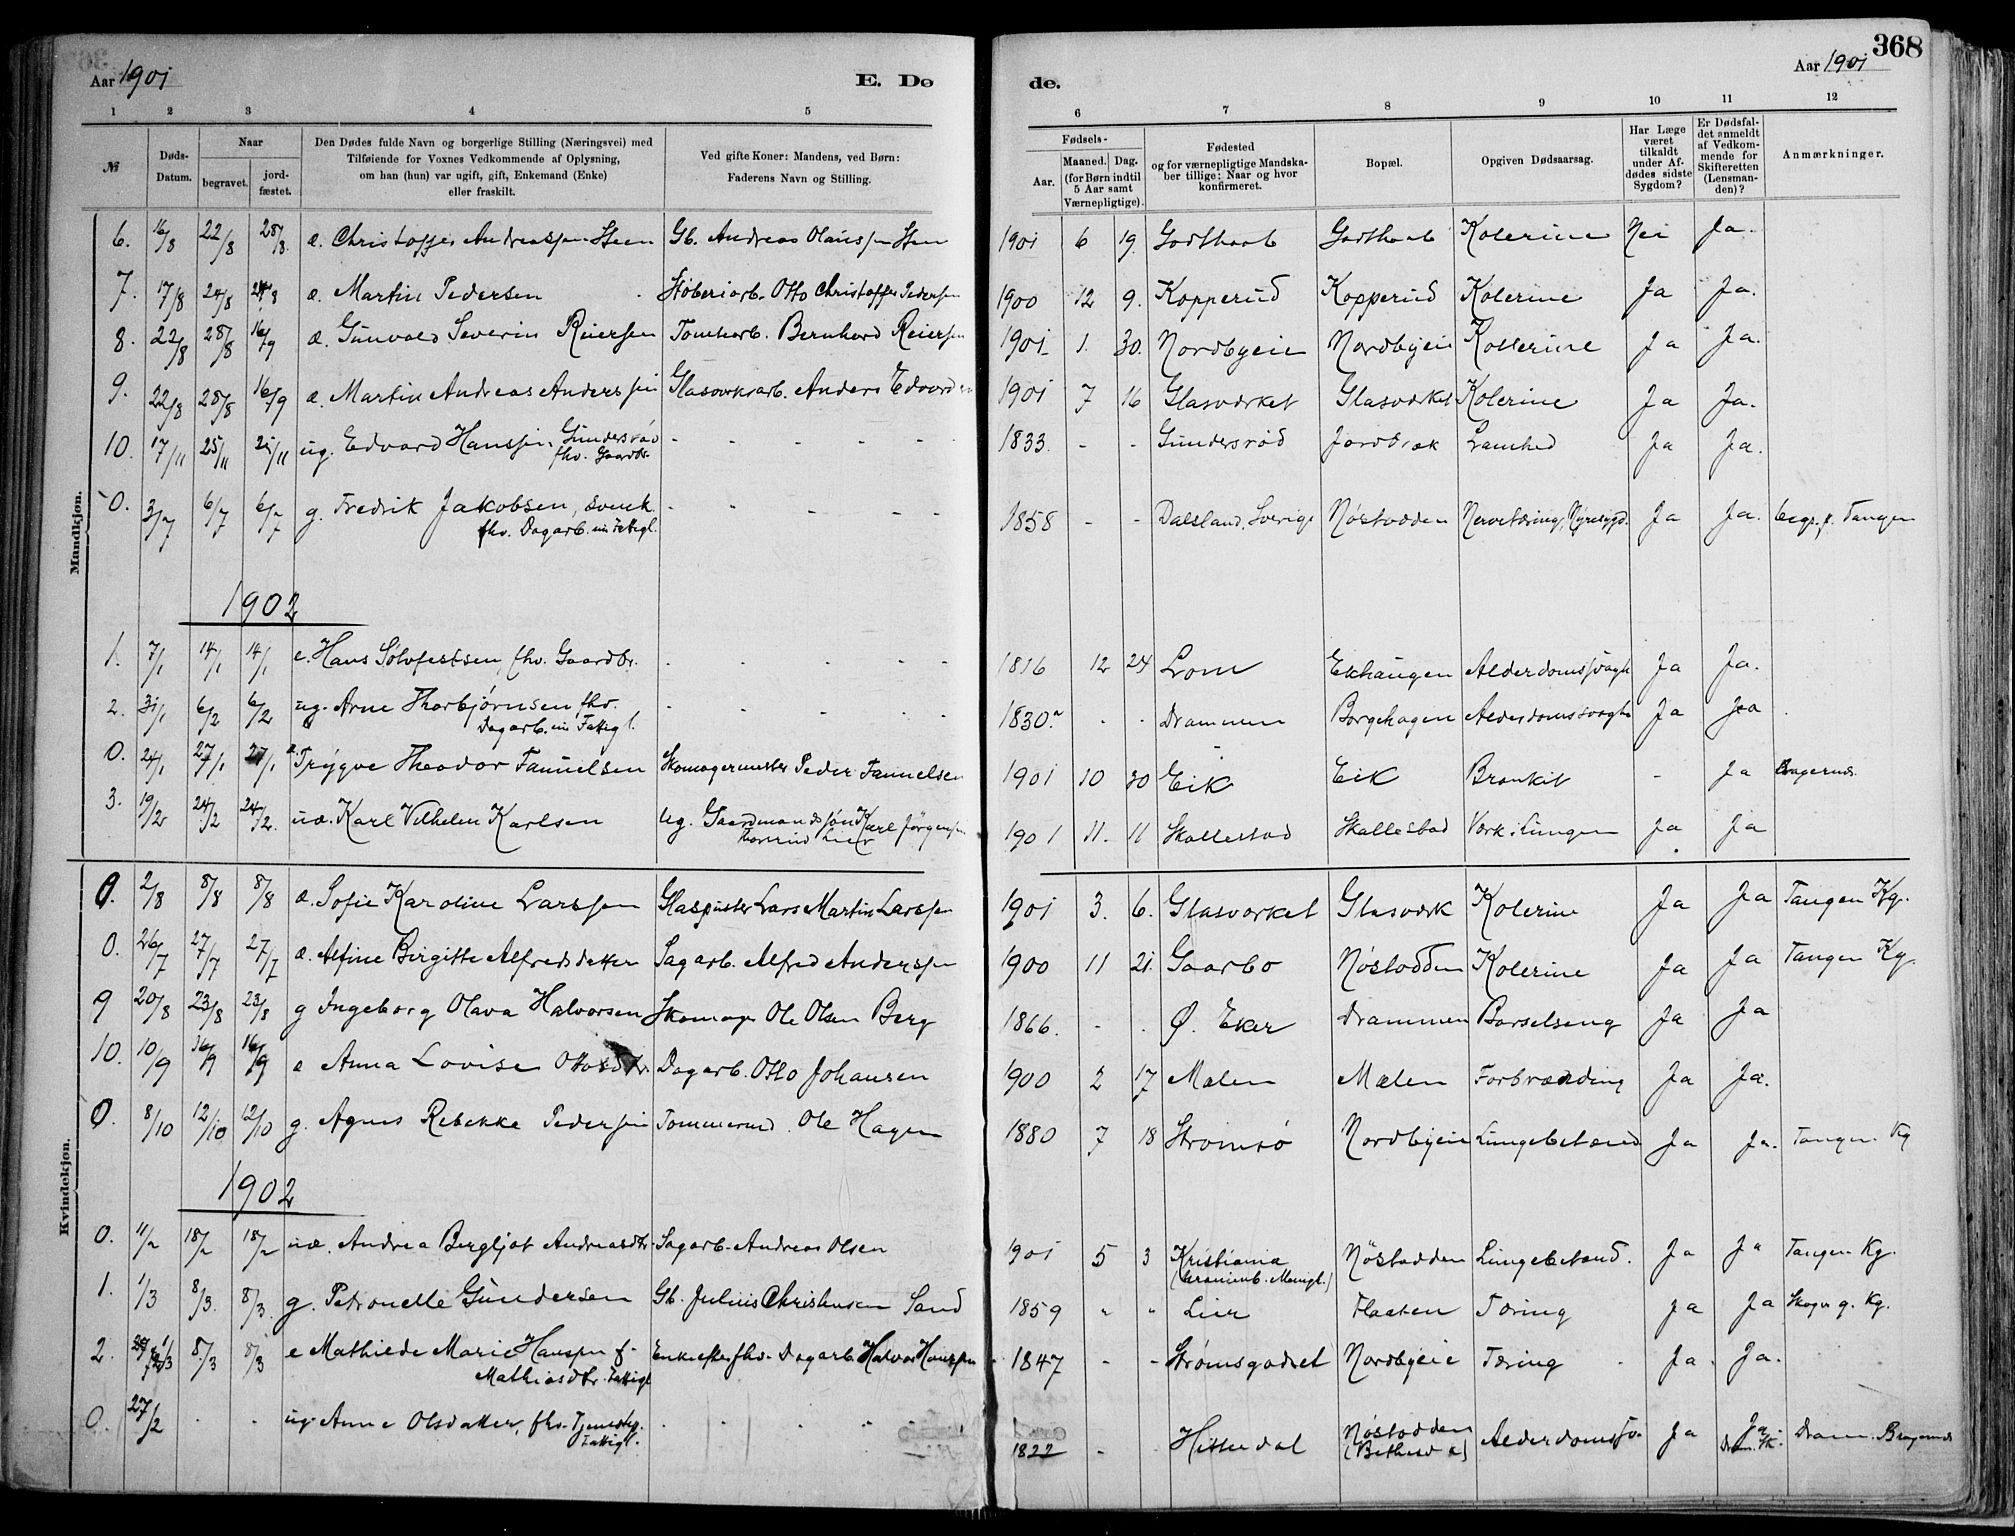 Aar 1901 E. Dø
de. Aar 1901 368
1 2 3 4 5
6 7 8 9 10 11 12
№
Døds-Datum.
Naar
begravet.
jord-fæstet.
Den Dødes fulde Navn og borgerlige Stilling (Næringsvei) med
Tilføiende for Voxnes Vedkommende af Oplysning,
om han (hun) var ugift, gift, Enkemand (Enke)
eller fraskilt.
Ved gifte Koner: Mandens, ved Børn:
Faderens Navn og Stilling.
Fødsels-
Aar.
Maaned. Dag.
(for Børn indtil
5 Aar samt
Værnepligtige).
Fødested
og for værnepligtige Mandska-
ber tillige: Naar og hvor
konfirmeret.
Bopæl.
Opgiven Dødsaarsag.
Har Læge
været
tilkaldt
under Af-
dødes sidste
Sygdom?
Er Dødsfal-
det anmeldt
af Vedkom-
mende for
Skifteretten
(Lensman-
den)?
Anmærkninger.
Mandkjøn.
6. 16/8 22/8 28/8 æ. Christoffer Andreassen Steen Gb. Andreas Olaussen Steen 1901 6 19 Godthaab Godthaab Kolerine Nei Ja.
7. 17/8 24/8 24/8 æ. Martin Pedersen Støberiarb. Otto Christoffer Pedersen 1900 12 9. Kopperud Kopperud Kolerine Ja Ja.
8. 22/8 28/8 16/9 æ. Gunvald Severin Reiersen Tomtearb. Bernhard Reiersen 1901 1. 30. Nordbyeie Nordbyeie Kollerine Ja Ja.
9. 22/8 28/8 16/9 æ. Martin Andreas Anderssen Glasverksarb. Anders Edvardsen 1901 7 16 Glasværket Glasværket Kolerine Ja Ja.
10. 17/11 25/11 25/11 ug. Edvard Hanssen Gundersrød - - - - - 1833. - - Gundersrød Jordbræk Lamhed Ja Ja.
fhv. Gaardbr.
0. 3/7 6/7 6/7 g. Fredrik Jakobsen, svensk - - - - - 1858 - - Dalsland, Sverige Nøstodden Nervetæring, Nyresygd. Ja Ja. begr. p. Tangen
fhv. Dagarb. nu Fattigl.
1902
1. 7/1 14/1 14/1 e. Hans Sølvfestsen, fhv. Gaardbr. - - - - - 1816 12 24 Lom Ekhaugen Alderdomssvagh Ja Ja.
2. 31/1 6/2 6/2 ug. Arne Thorbjørnsen, fhv. - - - - - 1830. - - Drammen Borgehagen Alderdomssvagh Ja Ja
Dagarb. nu Fattigl.
0. 24/1 27/1 27/1 æ. Trygve Theodor Fannelsen Skomagermester Peder Fannelsen 1901 10 20 Eik Eik Bronkit - Ja Bragernes.
3. 19/2 24/2 24/2. uæ. Karl Vilhelm Karlsen ug. Gaardmandssøn Karl Jørgensen 1901 11. 11 Skallestad Skallestad Værk i Lungen Ja Ja
Lier
Kvindekjøn.
0. 2/8 8/8 8/8 æ. Sofie Karoline Larssen Glaspuster Lars Martin Larssen 1901 3. 6. Glasværket Glasværk Kolerine Ja Ja Tangen Kg.
0. 26/7 27/7 27/7 æ. Alfine Birgitte Alfredsdatter Sagarb. Alfred Anderssen 1900 11 21. Gaarbo Nøstodden Kolerine Ja Ja Tangen Kg.
9 20/8 23/8 23/8 g Ingeborg Olava Halvorsen Skomager Ole Olsen Berg 1866. - - Ø. Eker Drammen Barselseng Ja Ja
10. 10/9 16/9 16/9 e Anna Lovise Ottosdtr. Dagarb. Otto Johansen 1900 2 17 Mælen Mælen Forbrænding Ja Ja.
0. 8/10 12/10 12/10 g. Agnes Rebekke Pedersen Tømmermd. Ole Hagen 1880 7 18 Strømsø Nordbyeie Lungebetænd Ja Ja. Tangen Kg
1902
0. 11/2 18/2 18/2 uæ. Andrea Bergljot Andreasdtr. Sagarb. Andreas Olsen 1901 5 3 Kristiania Nøstodden Lungebetænd. Ja Ja Tangen Kg.
1. 1/3 8/3. 8/3. g. Petronelle Gundersen Gb. Julius Christensen Sand 1859 " " Lier Flaaten Tæring Ja Ja Skoger g. Kg.
2. 1/3 8/3 8/3 e Mathilde Marie Hanssen f. Enke efter fhv. Dagarb. Halvor Hanssen 1847 - - Strømsgodset Nordbyeie Tæring Ja. Ja.
Mathiasdtr. Fattigl
0. 27/2 - - ug. Anne Olsdatter, fhv. Tjenestep. - - - - - 1822 - Hitterdal Nøstodden Alderdomssv. Ja Ja Dram. Bragernes
Fattigl. (Bethesda) Dram. Sk.